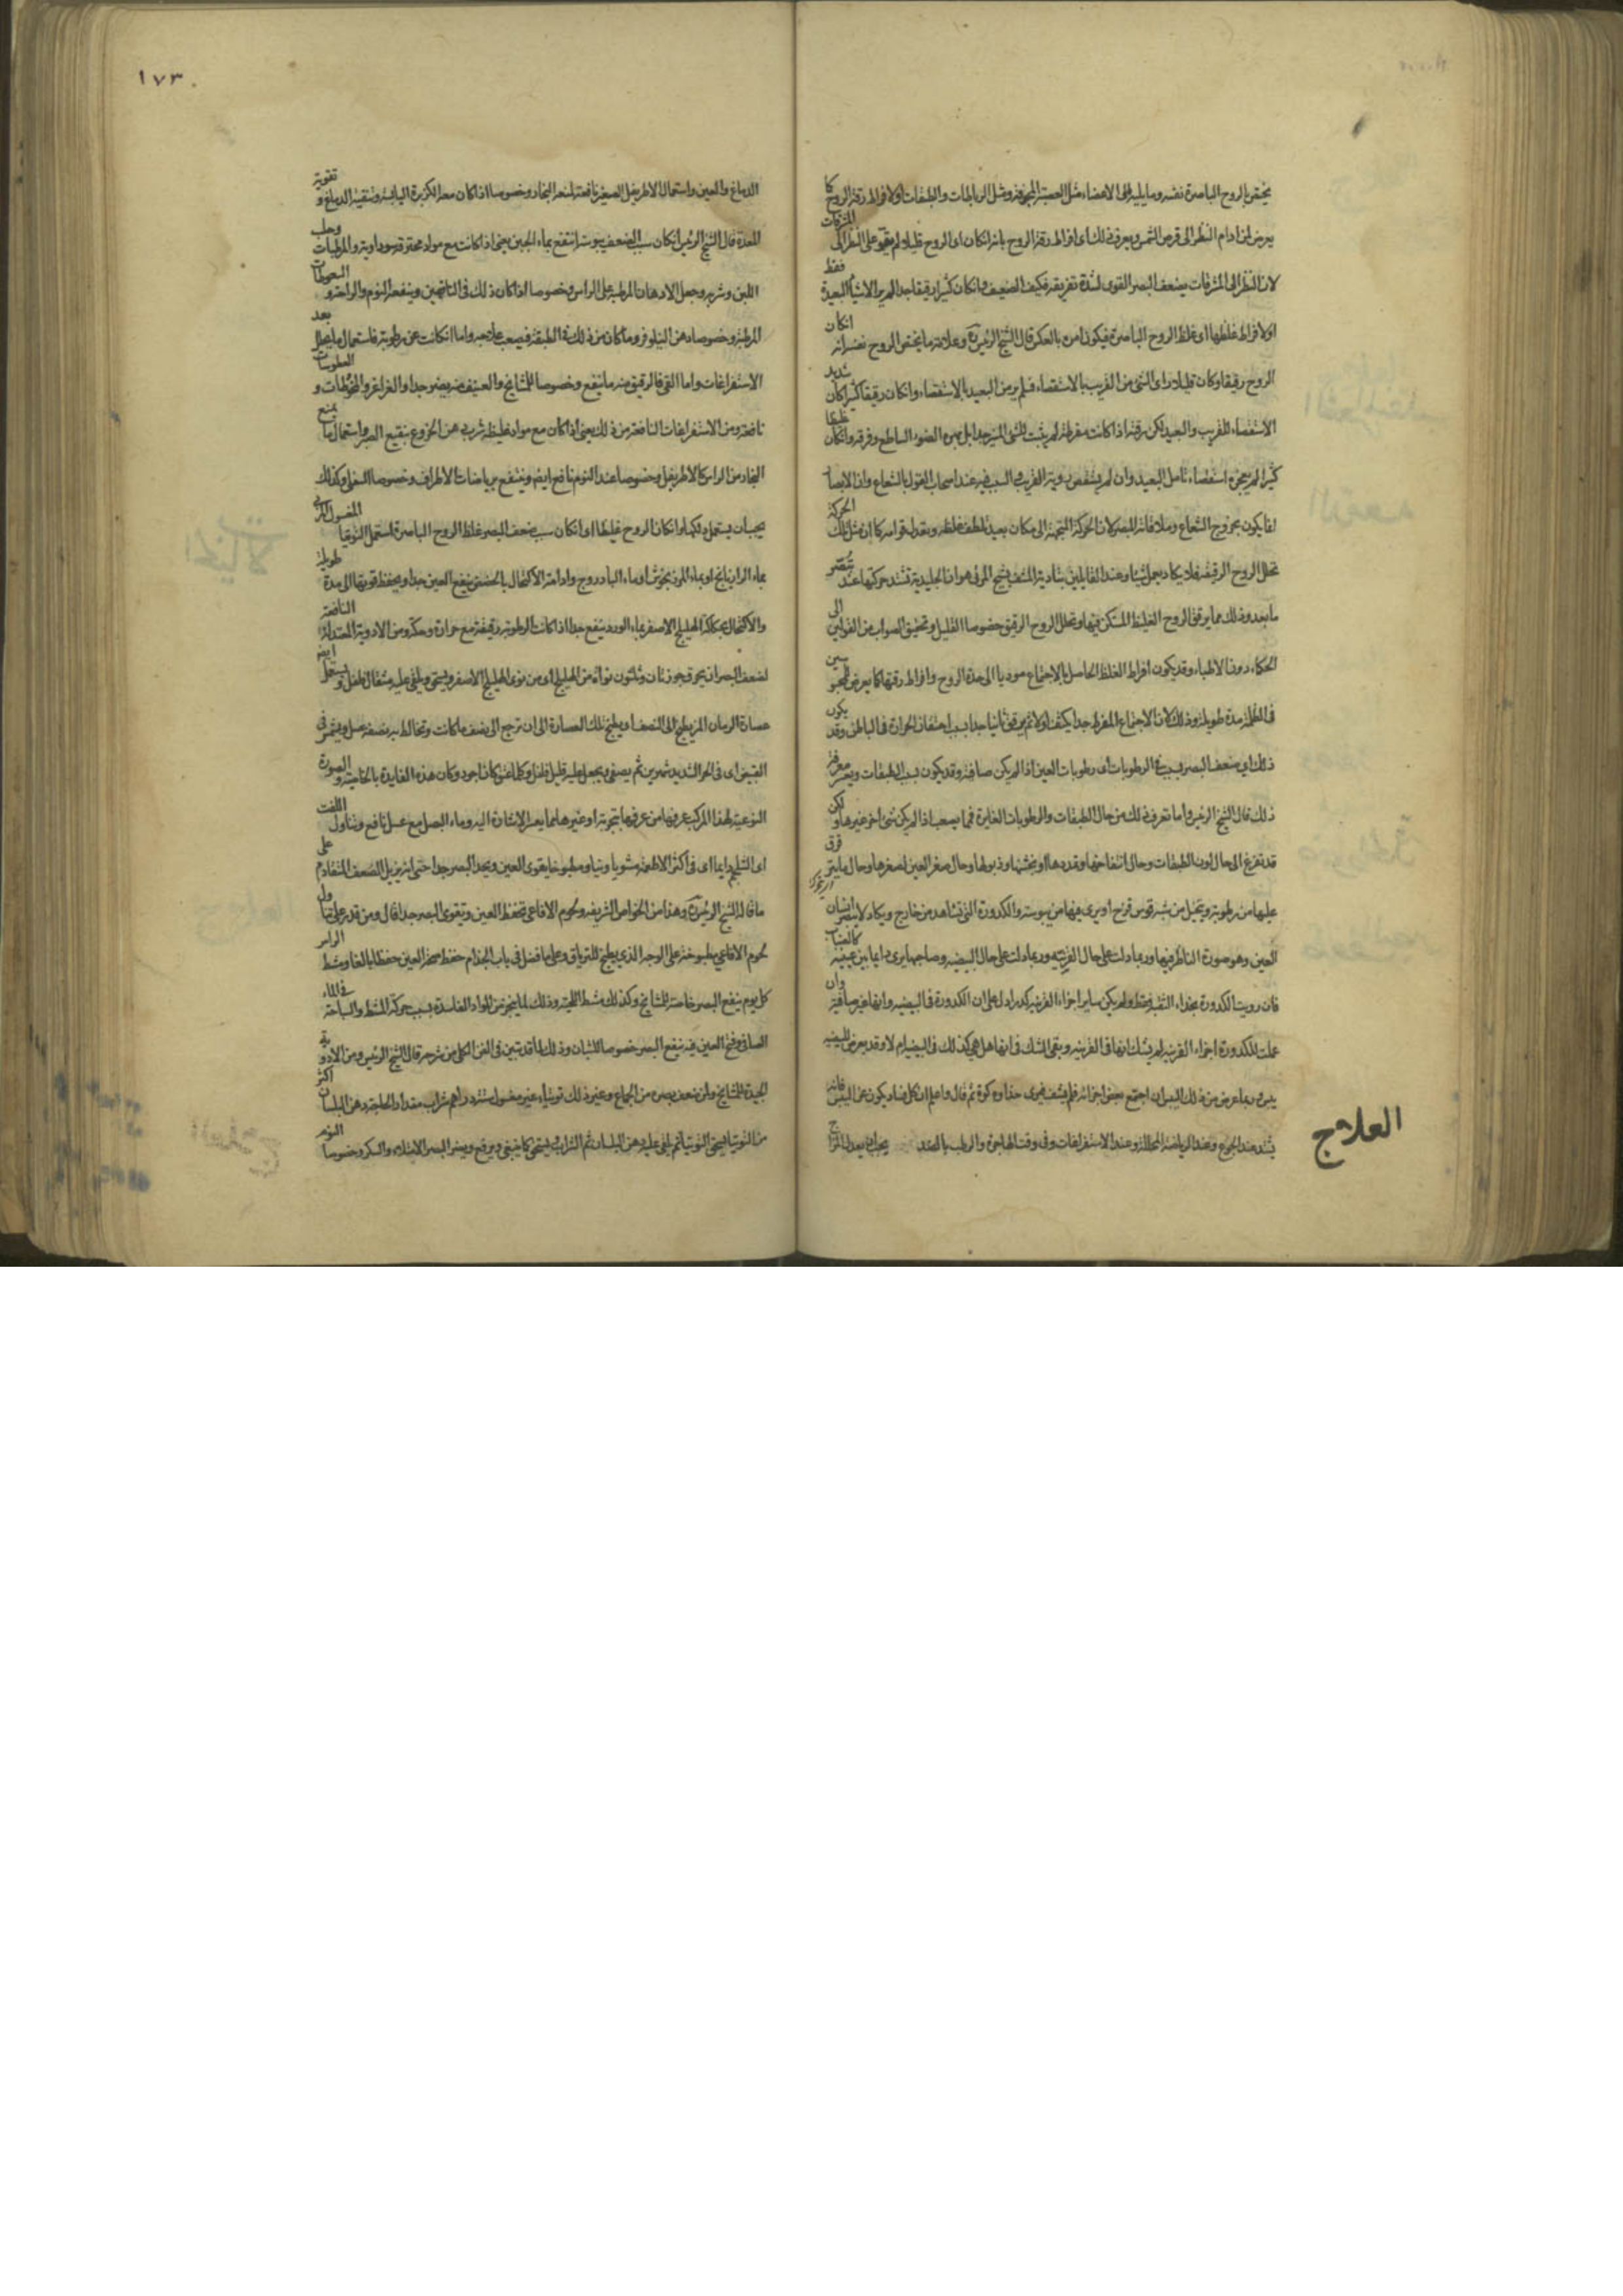 يختص بالروح الباصرة نفسه وما يليه الى الاعضاء مثل العصبة المجوفة ومثل الرباطات والطبقات اولا فراط رقة الروح كما
يعرض لمن ادام النظر الى قرص الشمس ويعرف ذلك اى افراط رقة الروح بانه ان كان اى الروح قليلا لم يقو على النظر الى المشرقات
لان النظر الى المشرقات يضعف البصر القوى لشدة تفريقه فكيف الضعيف وان كان كثيرا رقيقا جدا لم ير الاشياء البعيدة فقط
اولا فراط غلظها اى غلظ الروح الباصرة فيكون امره بالعكس قال الشيخ الرئيس وعلامة ما يختص الروح نفسه انه ان كان
الروح رقيقا وكان قليلا راى الشئ من القريب بالاستقصاء فلم ير من البعيد بالاستقصاء وان كان رقيقا كثيرا كان شديد
الاستقصاء للقريب والبعيد لكن رقته اذا كانت مفرطة لم يثبت للشئ المنير جدا بل بهره الضوء الساطع وفرقه وان كان غليظا
كثيرا لم يعجزه استقصاء تامل البعيد وان لم يستقص روية القريب والسبب فيه عند اصحاب القول بالشعاع وان الابصار
انما يكون بخروج الشعاع وملاقاته المبصر لان الحركة المتجهة الى مكان بعيد تلطف غلظه وبعدل قوامه كما ان مثل تلك الحركة
تحلل الروح الرقيقة فلا يكاد يعمل شيئا وعند القايلين بتادية المشف شبح المرئى هو ان الجليدية تشتد حركتها عند تبصر
ما بعد وذلك مما يرقق الروح الغليظ المستكن فيها ويحلل الروح الرقيق خصوصا القليل وتحقيق الصواب من القولين الى
الحكماء دون الاطباء وقد يكون افراط الغلظ الحاصل بالاجتماع موديا الى حدة الروح وافراط رقتها كما يعرض للمحبوسين
فى الظلمة مدة طويلة وذلك لان الاجتماع المفرط جدا يكثف اولا ثم يرقق ثانيا جدا بسبب احتقان الحرارة فى الباطن وقد يكون
ذلك اى ضعف البصر بسبب فى الرطوبات اى رطوبات العين اذا لم يكن صافية وقد يكون بسبب الطبقات ويعسر معرفة
ذلك قال الشيخ الرئيس واما تعرف ذلك من حال الطبقات والرطوبات الغايرة فمما يصعب اذا لم يكن شئ اخر غيرها ولكن
قد تفزع الى حال لون الطبقات وحال انتفاخها وتمددها او تخشنها وذبولها وحال صغر العين لصغرها وحال ما يترقرق
عليها من رطوبة ويتخيل من شبه قوس قزح او يرى فيها من يبوسة والكدورة التى تشاهد من خارج ويكاد لا يبصر انسان
العين وهو صورة الناظر فيها وربما دلت على حال القرنية وربما دلت على حال البيضية وصاحبها يرى دايما بين عينيه كالضباب
فان رويت الكدورة بحذاء الثقبة فقط ولم يكن ساير اجزاء القرنية كدرا دل على ان الكدورة فى البيضية وانها غير صافية وان
عمت الكدورة اجزاء القرنية لم يشك انها فى القرنية وبقى الشك فى انها هل هى كذلك فى البيضية ام لا وقد يعرض للبيضية
يبس وربما عرض من ذلك اليبس ان اجتمع بعض اجزائه فلم يشف فيرى حذاءه كوة ثم قال واعلم ان كل فساد يكون عن اليبس فانه
يشتد عند الجوع وعند الرياضة المحللة وعند الاستفراغات وفى وقت الهاجرة والرطب بالضد يجب ان يعدل المزاج
العلاج
١٧٣
الدماغ والعين واستعمال الاطريفل الصغير نافعة لمنعه البخار وخصوصا اذا كان معه الكزبرة اليابسة وتنقية الدماغ وتقوية
المعدة قال الشيخ الرئيس ان كان سبب الضعف يبوسة انتفع بماء الجبن يعنى اذا كانت مع مواد محترقة سوداوية والمرطبات وحلب
اللبن وشربه وجعل الادهان المرطبة على الراس وخصوصا اذا كان ذلك فى الناقهين وينفعه النوم والراحة والسعوطات
المرطبة وخصوصا دهن النيلوفر وما كان من ذلك فى الطبقة فيصعب علاجه واما ان كانت عن رطوبة فاستعمال ما يحلل بعد
الاستفراغات واما القى فالرقيق منه ما ينفع وخصوصا للمشايخ والعنيف منه يضر جدا والغراغر والمخطات والعطوسات
نافعة ومن الاستفراغات النافعة من ذلك يعنى اذا كان مع مواد غليظة شرب دهن الخروع بنقيع الصبر واستعمال ما يمنع
البخار من الراس كالاطريفل وخصوصا عند النوم نافع ايضا وينتفع برياضات الاطراف وخصوصا السفلى وكذلك
يجب ان يستعمل دلكها وان كان الروح غليظا اى ان كان سبب ضعف البصر غلظ الروح الباصرة استعمل التوتيا المغسول المربى
بماء الرازيانج او بماء المرزنجوش او ماء البادروج وادامة الاكتحال بالحضض ينفع العين جدا ويحفظ قوتها الى مدة طويلة
والاكتحال بحكاكة الهليلج الاصفر بماء الورد ينفع جدا اذا كانت الرطوبة رقيقة مع حرارة وحكة ومن الادوية المعتدلة النافعة
لضعف البصر ان يحرق جوزتان وثلثون نواة من الهليلج اى من نوى الهليلج الاصفر ويسحق ويلقى عليه مثقال فلفل ويستعمل ايضا
عصارة الرمان المز يطبخ الى النصف اى يطبخ تلك العصارة الى ان ترجع الى نصف ما كانت وتخالط به نصفه عسل ويشمس فى
القيض اى فى الحر الشديد شهرين ثم يصفى ويجعل عليه قليل فلفل وكلما عتق كان اجود وكان هذه الفايدة بالخاصية والصورة
النوعية لهذا المركب عرفها من عرفها بتجربة او غيرها مما يعسر الاشارة اليه وماء البصل مع عسل نافع وتناول اللفت
اى الشلجم دايما اى فى اكثر الاطعمة مشويا ونيا ومطبوخا يقوى العين ويحد البصر جدا حتى انه يزيل الضعف المتقادم على
ما قاله الشيخ الرئيس وهذا من الخواص الشريفة ولحوم الافاعى تحفظ العين وتقوى البصر جدا قال ومن قدر على تناول
لحوم الافاعى مطبوخة على الوجه الذى يطبخ للترياق وعلى ما فصل فى باب الجذام حفظ صحة العين حفظا بالغا ومشط الراس
كل يوم ينفع البصر خاصة للمشايخ وكذلك مشط اللحية وذلك لما يتبخر من المواد الفاسدة بسبب حركة المشط والسباحة فى الماء
الصافى وفتح العين فيه ينفع البصر خصوصا للشبان وذلك لما قد تبين فى الفن الكلى من شرحه قال الشيخ الرئيس ومن الادوية
الجيدة للمشايخ ولمن ضعف بصره من الجماع وغير ذلك توتياء غير مغسول ستة دراهم شراب مقدار الحاجة دهن البلسان اكثر
من التوتيا يسحق التوتيا ثم يلقى عليه دهن البلسان ثم الشراب ويسحق كما ينبغى ويرفع ويضر البصر الامتلاء والسكر وخصوصا النوم